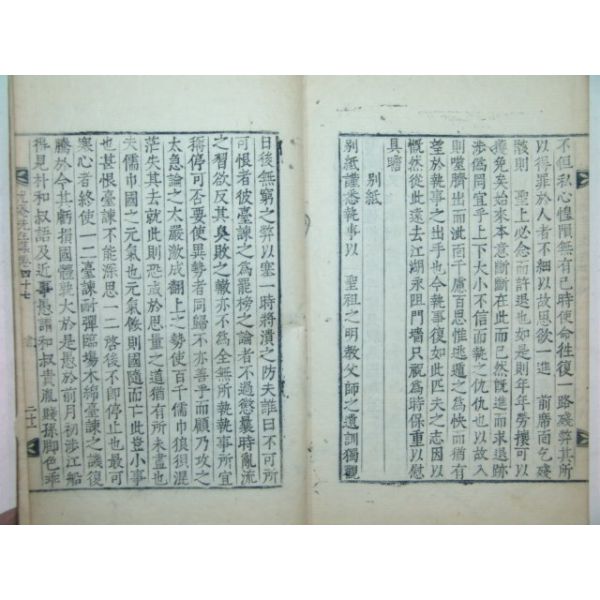 不但私心惶隕無有已時使命往復一路殘弊其所
以得罪於人者不細以故思欲一進　前席面乞殘
骸則　聖上必念而許退也如是則年年勞攘可以
獲免矣始來本意斷斷在此而已然旣進而求退跡
涉僞罔宜乎上下大小不信而執之仇仇也以故入
則噬臍出而泚面千慮百思惟逃遁之爲快而猶有
望於執事之出手也今執事復如此匹夫之志因以
慨然從此遠去江湖永阻門墻只祝爲時保重以慰
具瞻
別紙
別紙謹悉執事以　聖祖之明教父師之遺訓獨觀
日後無窮之弊以塞一時將潰之防夫誰曰不可所
可恨者彼臺諫之爲罷榜之論者不過慾暮時亂流
之習欲反其臭敗之轍亦不爲全無所執執事所宜
稱停可否要使異勢者同歸不亦善乎而顧乃攻之
太急論之太嚴激成翻上之勢使百千儒巾狼狽混
茫失其去就此則恐或於思量之道猶有所未盡也
夫儒巾國之元氣也元氣餒則國隨而亡此豈小事
也甚恨臺諫不能深思一二啓後不卽停止也最可
寒心者終使一二臺諫耐彈臨場不稀臺諫之譏復
騰於今其虧損國體莫大於是愚於前月初涉江船
得見朴和叔語及近事愚謂和叔貴胤賤孫脚色乖
卷四十七